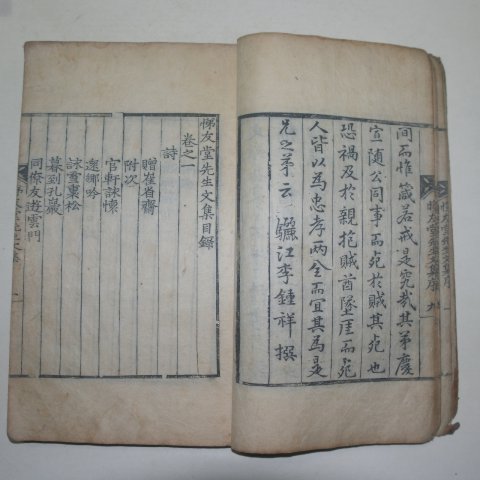 間而惟箴若戒是究哉其弟慶
宣随公同事而死於賊其死也
恐禍及於親抱賊酋墜崖而死
人皆以為忠孝兩全而宜其為是
兄之弟云 驪江李鍾祥 撰
悌友堂先生文集序 九
悌友堂先生文集目錄
卷之一
詩
贈崔省齋
附次
官軒詠懷
還鄉吟
詠雪裏松
暮到孔巖
同療友遊雲門